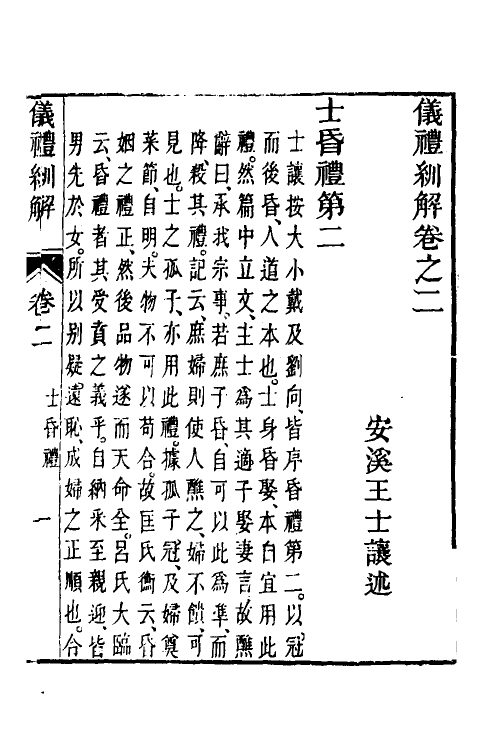 儀禮紃解卷之二
安溪王士讓述
士昏禮第二
士讓按大小戴及劉向、皆序昏禮第二。以冠
而後昏、人道之本也。士身昏娶、本自宜用此
禮。然篇中立文、主士為其適子娶妻言、故醮
辭曰、承我宗事、若庶子昏、自可以此為準、而
降殺其禮。記云、庶婦則使人醮之、婦不饋、可
見也。士之孤子、亦用此禮。據孤子冠、及婦奠
菜節、自明。夫物不可以苟合。故匡氏衡云、昏
姻之禮正、然後品物遂而天命全。呂氏大臨
云、昏禮者、其受賁之義乎。自納采至親迎、皆
男先於女。所以别疑遠恥、成婦之正順也。合
儀禮紃解
卷二
士昏禮
一